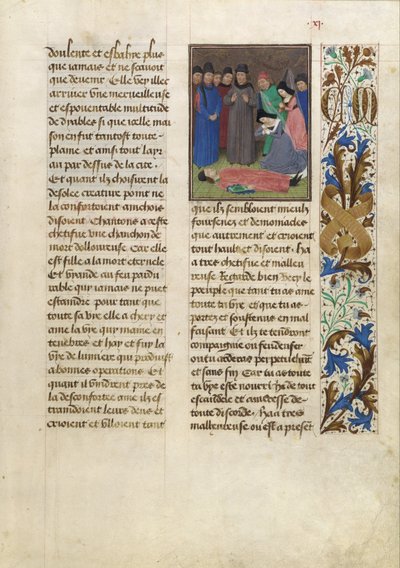 .xi.
doulente et esbahie plus
que iamais et ne scauoit
que deuenir Elle vey illec
arriuer vne merueilleuse
et espouentable multitude
de dyables si que celle mai
son en fut tantost toute
plaine et ainsi tout lay
au par dessus de la cite.
Et quant ilz choisirent la
desolee creature point ne
la conforterent ainchois
disoient Chantons a ceste
chetifue vne chanchon de
mort doloureuse Car elle
est fille a la mort eternele
Et viande au feu pardu
rable qui iamais ne puet
estaindre pour tant que
toute sa vye elle a chery et
ame la vye qui maine en
tenebres et hay et fuy la
vye de lumiere qui produist
a bonnes operations Et
quant ilz vindrent pres de
la desconfortee ame ilz es
traindoient leurs dens et
crioient et vlloient tant
que ilz sembloient mieulx
foursenez et demoniacles
que autrement et crioient
tout hault et disoient. Ha
a tres chetifue et malleu
reuse Regarde bien Vecy le
poeuple que tant tu as ame
toute ta vye et que tu as
portez et soustenus en mal
faisant Et ilz te tendront
compaignie ou feu denfer
ou tu arderas perpetuelment
et sans fin Car tu as toute
ta vye este nourrihe de tout
escandele et amieresse de
toute discorde. Ha a tres
malleureuse ou est a preset